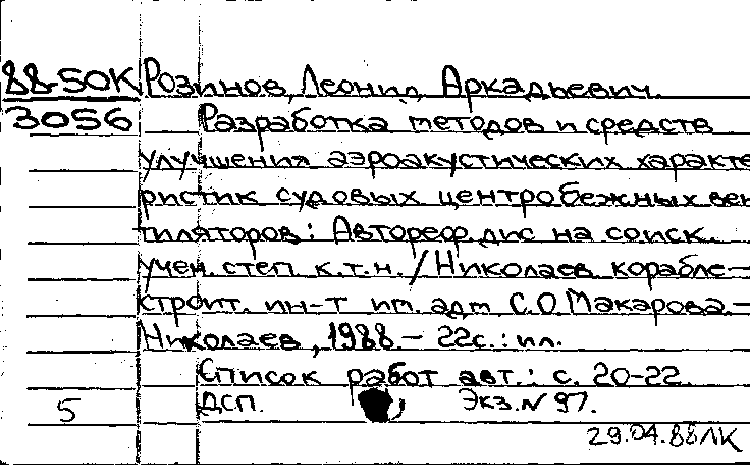 88-50К Розинов, Леонид Аркадьевич.
3056 Разработка методов и средств
улучшения аэроакустических характе
ристик судовых центробежных вен
тиляторов: Автореф. дис на соиск.
учен. степ. к.т.н. / Николаев. корабле-
строит. ин-т им. адм С.О.Макарова.-
Николаев, 1988.- 22с.: ил.
Список работ авт.: с. 20-22.
5 ДСП. Экз.N 97.
29.04.88ЛК